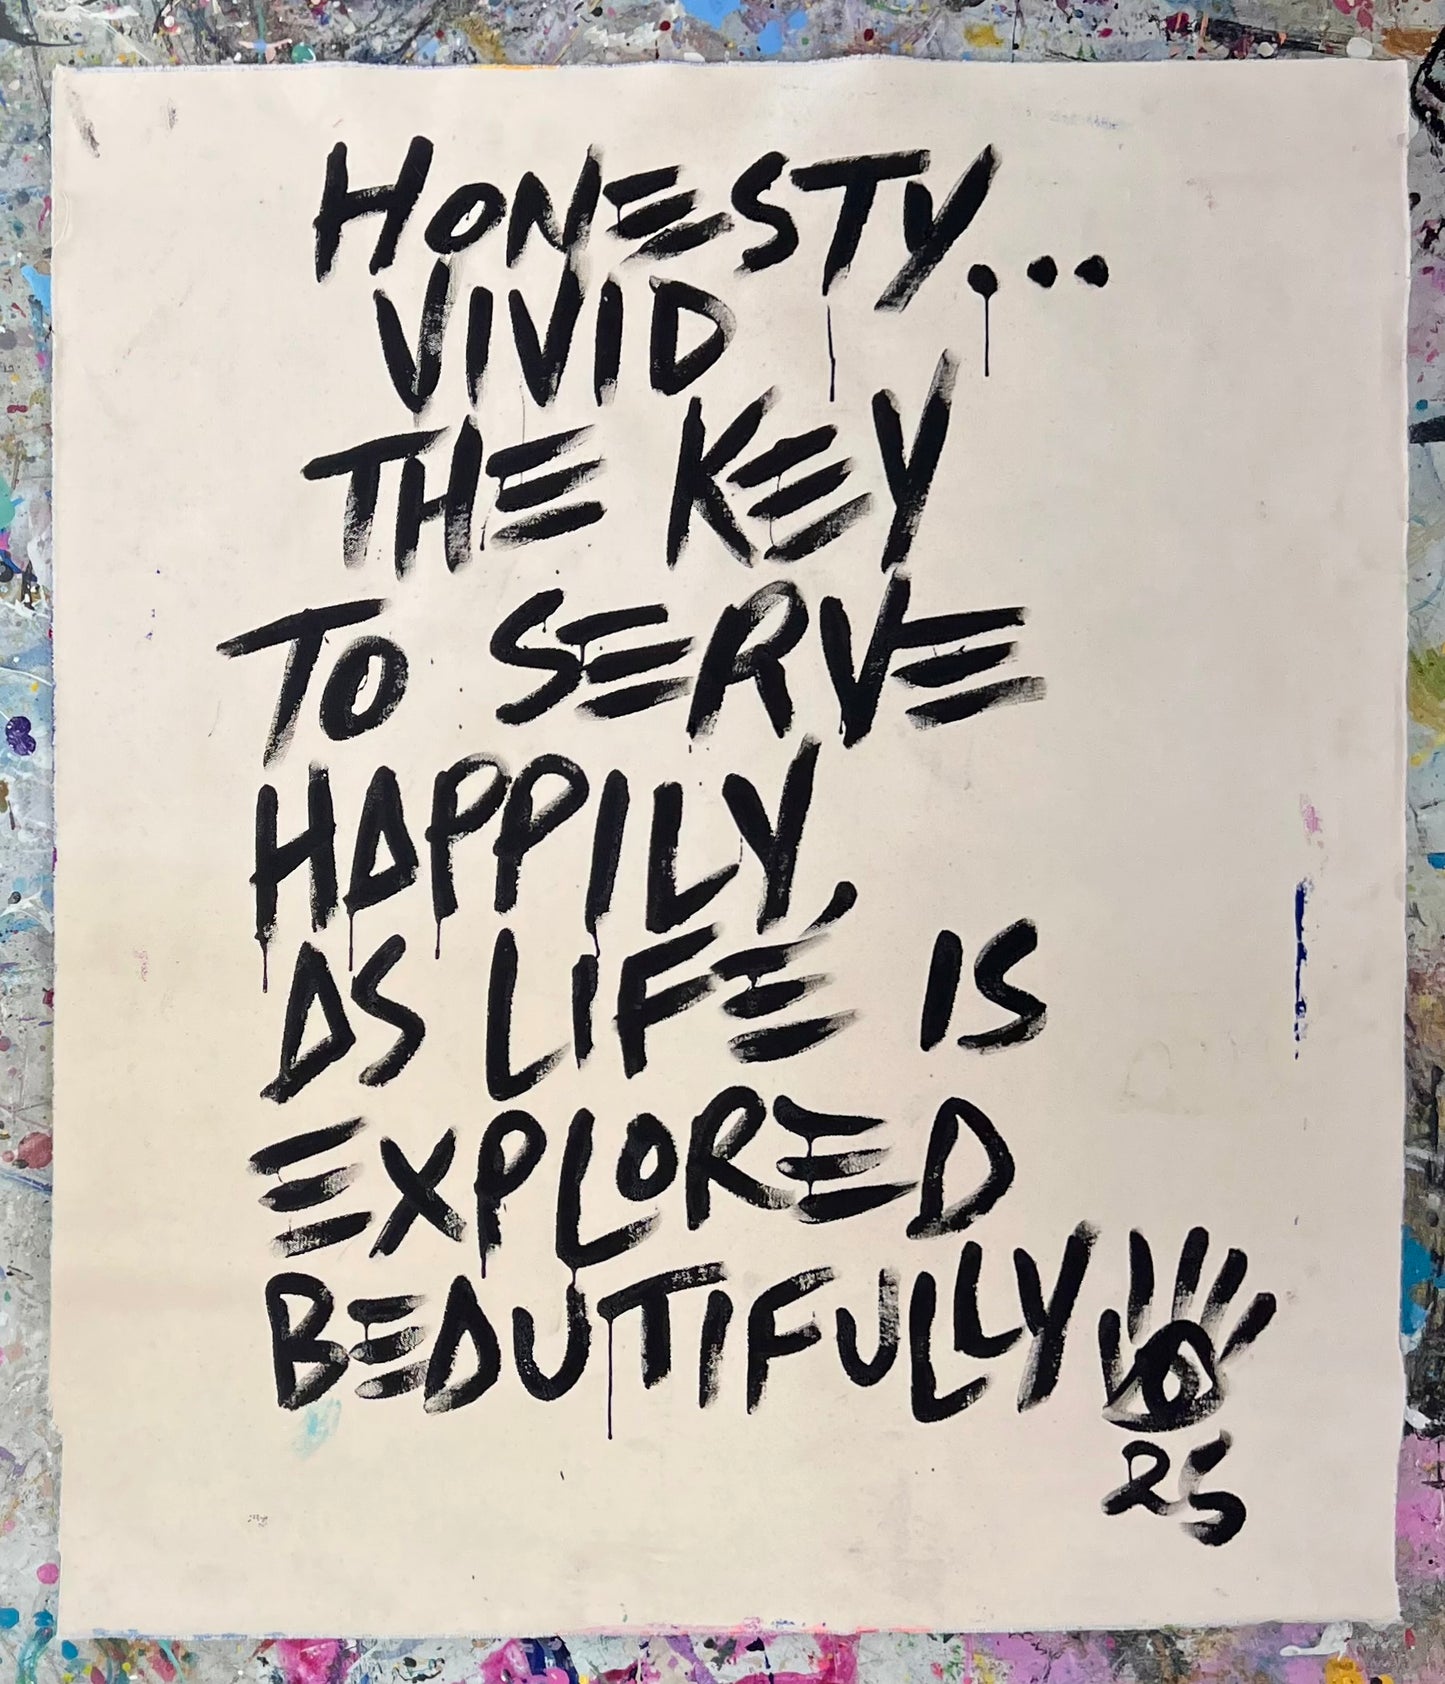 HONESTY...
VIVID
THE KEY
TO SERVE
HAPPILY,
AS LIFE IS
EXPLORED
BEAUTIFULLY
25